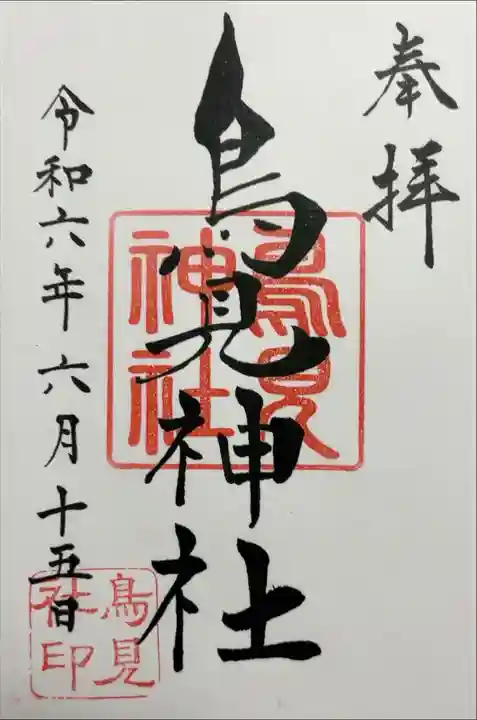 奉拝
鳥見神社
令和六年六月十五日
鳥見
神社
鳥見
社印